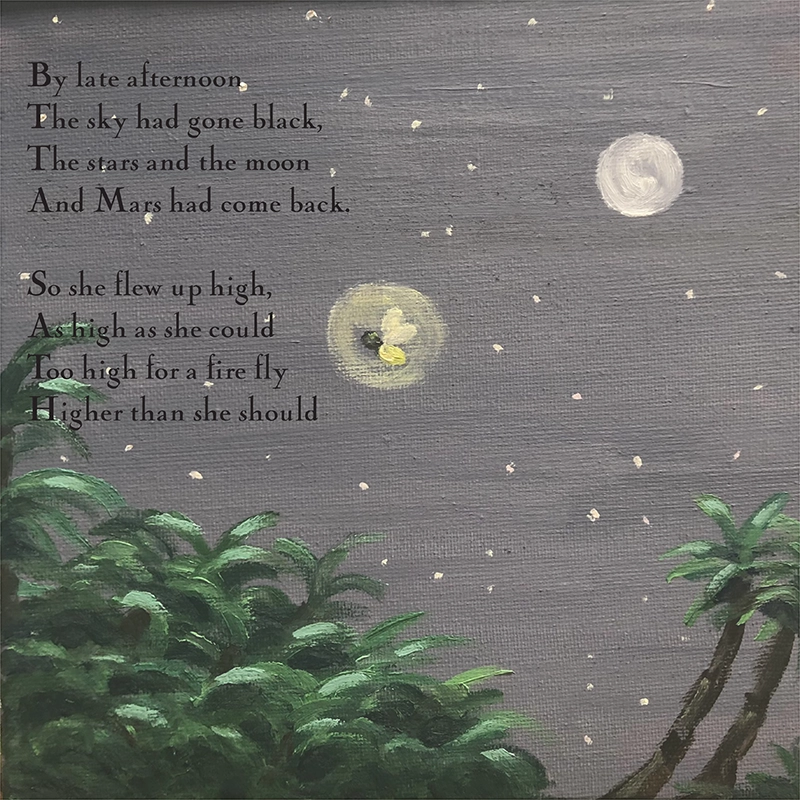 By late afternoon
The sky had gone black,
The stars and the moon
And Mars had come back.
So she flew up high,
As high as she could
Too high for a fire fly
Higher than she should